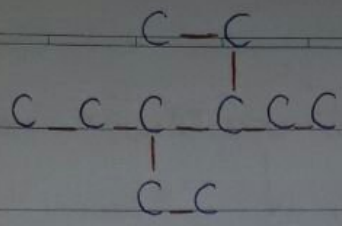 C — C
C — C — C — C — C — C
C — C